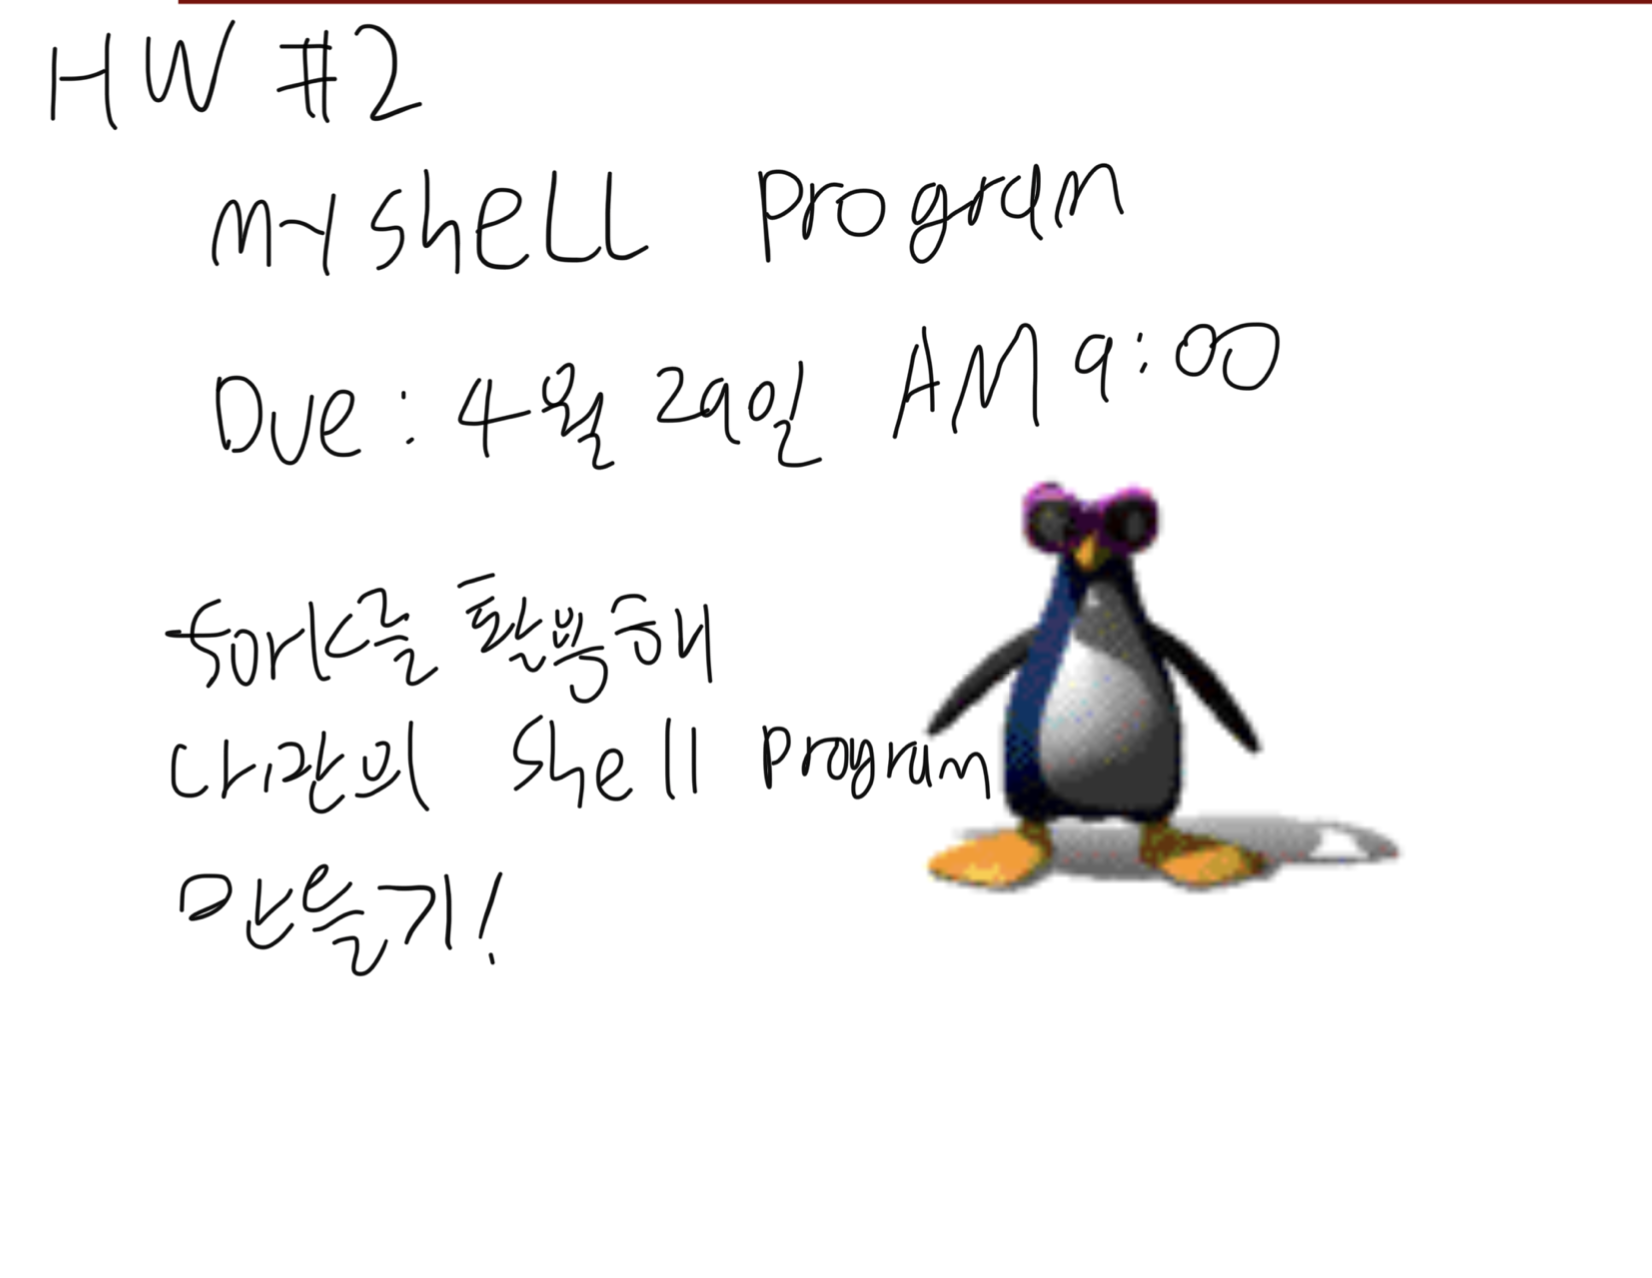 HW #2
my shell program
Due : 4월 29일 AM 9:00
fork를 활용해
나만의 shell program
만들기!